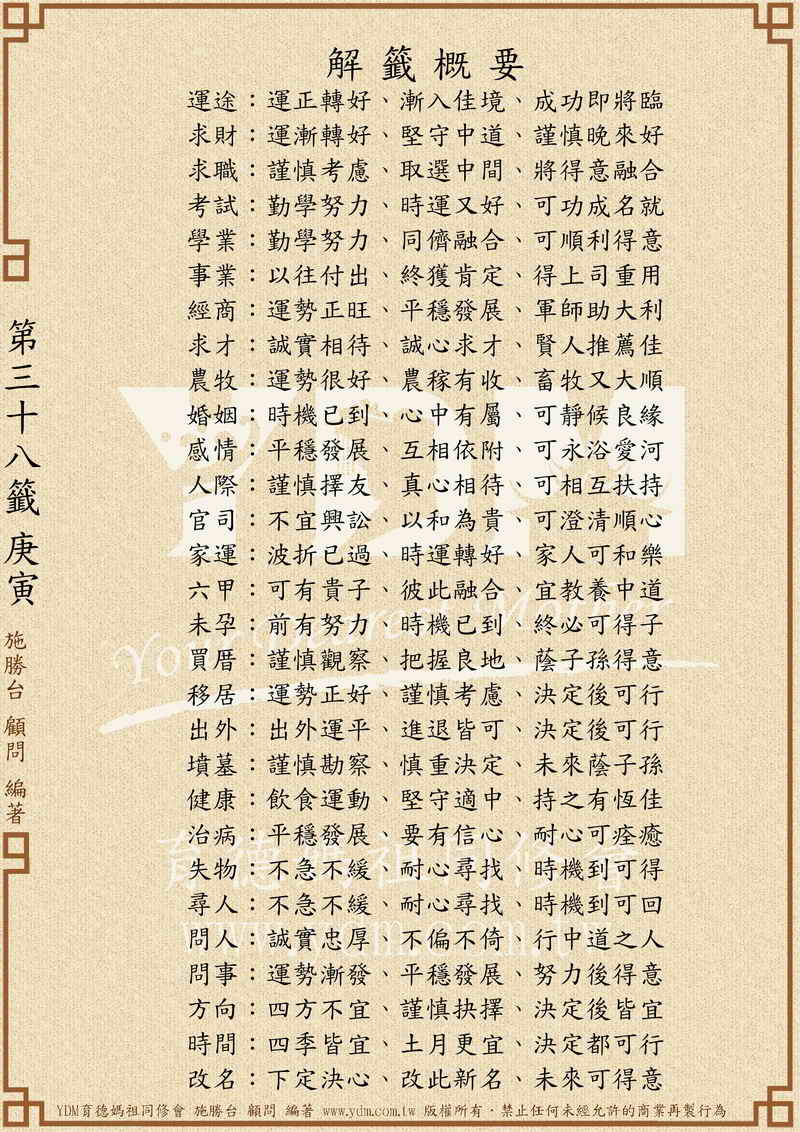 解籤概要
運途：運正轉好、漸入佳境、成功即將臨
求財：運漸轉好、堅守中道、謹慎晚來好
求職：謹慎考慮、取選中間、將得意融合
考試：勤學努力、時運又好、可功成名就
學業：勤學努力、同儕融合、可順利得意
事業：以往付出、終獲肯定、得上司重用
經商：運勢正旺、平穩發展、軍師助大利
求才：誠實相待、誠心求才、賢人推薦佳
農牧：運勢很好、農稼有收、畜牧又大順
婚姻：時機已到、心中有屬、可靜候良緣
感情：平穩發展、互相依附、可永浴愛河
人際：謹慎擇友、真心相待、可相互扶持
官司：不宜興訟、以和為貴、可澄清順心
家運：波折已過、時運轉好、家人可和樂
六甲：可有貴子、彼此融合、宜教養中道
未孕：前有努力、時機已到、終必可得子
買厝：謹慎觀察、把握良地、蔭子孫得意
移居：運勢正好、謹慎考慮、決定後可行
出外：出外運平、進退皆可、決定後可行
墳墓：謹慎勘察、慎重決定、未來蔭子孫
健康：飲食運動、堅守適中、持之有恆佳
治病：平穩發展、要有信心、耐心可痊癒
失物：不急不緩、耐心尋找、時機到可得
尋人：不急不緩、耐心尋找、時機到可回
問人：誠實忠厚、不偏不倚、行中道之人
問事：運勢漸發、平穩發展、努力後得意
方向：四方不宜、謹慎抉擇、決定後皆宜
時間：四季皆宜、土月更宜、決定都可行
改名：下定決心、改此新名、未來可得意
第三十八籤 庚寅
施勝台 顧問 編著
YDM
Your Dearest Mother
育德媽祖同修會
www.ydm.com.tw
YDM育德媽祖同修會 施勝台 顧問 編著 www.ydm.com.tw 版權所有．禁止任何未經允許的商業再製行為